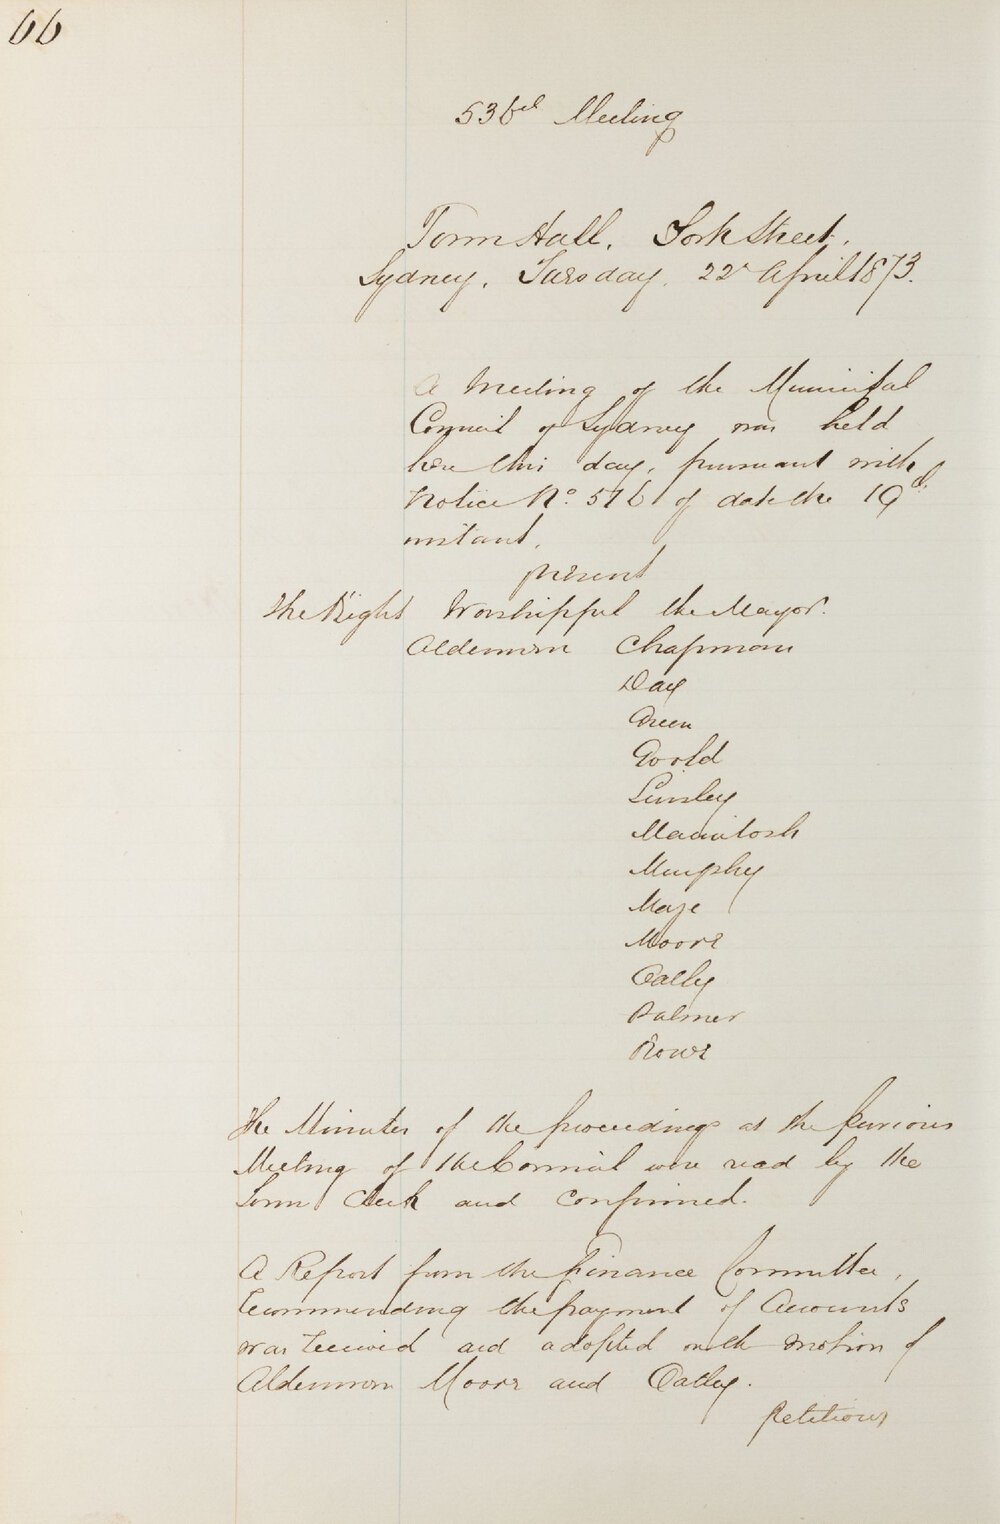 66
536th Meeting
Town Hall, York Street,
Sydney, Tuesday, 22nd April 1873.
A Meeting of the Municipal
Council of Sydney was held
here this day, pursuant with
Notice No. 516 of date the 19th
instant,
present
The Right Worshipful the Mayor.
Aldermen Chapman
Day
Green
Goold
Linsley
Macintosh
Murphy
Maze
Moore
Oatley
Palmer
Rowe
The Minutes of the proceedings at the previous
Meeting of the Council were read by the
Town Clerk and confirmed.
A Report from the Finance Committee,
recommending the payment of Accounts
was received and adopted on the motion of
Aldermen Moore and Oatley.
Petitions